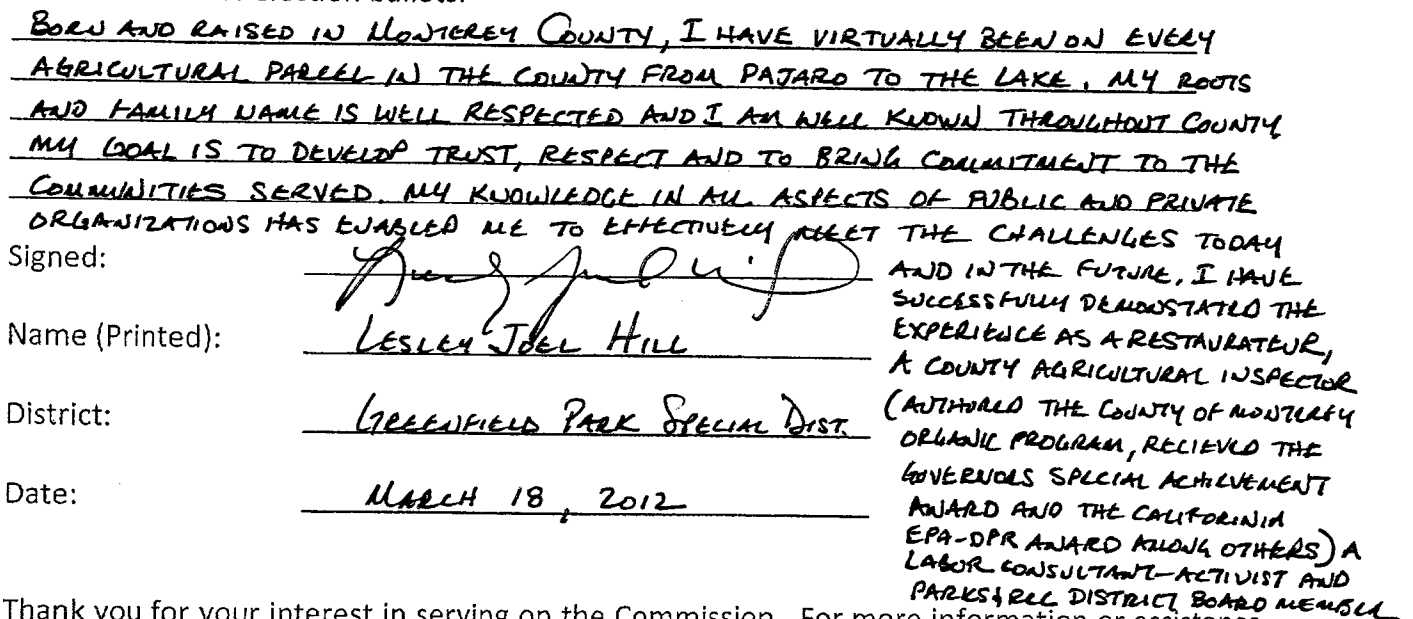 BORN AND RAISED IN MONTEREY COUNTY, I HAVE VIRTUALLY BEEN ON EVERY
AGRICULTURAL PARCEL IN THE COUNTY FROM PAJARO TO THE LAKE. MY ROOTS
AND FAMILY NAME IS WELL RESPECTED AND I AM WELL KNOWN THROUGHOUT COUNTY
MY GOAL IS TO DEVELOP TRUST, RESPECT AND TO BRING COMMITMENT TO THE
COMMUNITIES SERVED. MY KNOWLEDGE IN ALL ASPECTS OF PUBLIC AND PRIVATE
ORGANIZATIONS HAS ENABLED ME TO EFFECTIVELY MEET THE CHALLENGES TODAY
AND IN THE FUTURE, I HAVE
SUCCESSFULLY DEMONSTATED THE
EXPERIENCE AS A RESTAURATEUR,
A COUNTY AGRICULTURAL INSPECTOR
(AUTHORED THE COUNTY OF MONTEREY
ORGANIC PROGRAM, RECIEVED THE
GOVERNORS SPECIAL ACHIEVEMENT
AWARD AND THE CALIFORINIA
EPA-DPR AWARD AMONG OTHERS) A
LABOR CONSULTANT-ACTIVIST AND
PARKS & REC DISTRICT BOARD MEMBER
Signed:
Name (Printed): LESLEY JOEL HILL
District: GREENFIELD PARK SPECIAL DIST.
Date: MARCH 18, 2012
Thank you for your interest in serving on the Commission. For more information or assistance